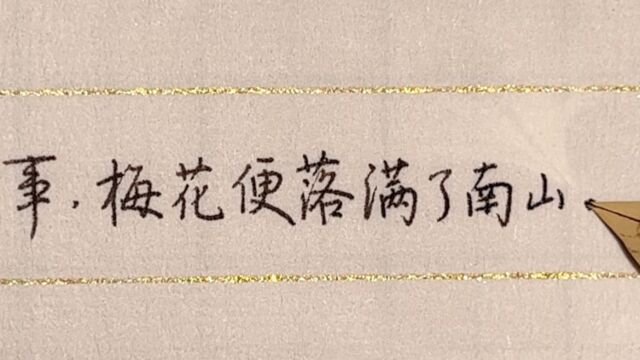 事,梅花便落满了南山。